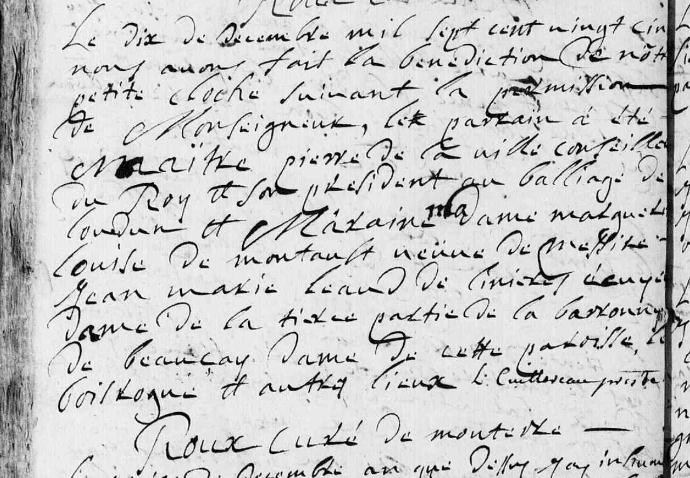 Le dix de decembre mil sept cent vingt cin
nous avons fait la benediction de nõtr
petite cloche suivant la permission
de Monseigneur, le parrain a été
Maitre pierre de la ville conseille
du Roy et son president au balliage de
loudun et Maraine ma dame marguer
louise de montault veuve de Messire
Jean marie Leaud de linieres écuye
dame de la tierce partie de la baronny
de beaucay dame de cette paroisse, le
boisrogue et autres lieux L. Cuillereau prestre
Roux curé de monterre
decembre an que dessus j'ay inhum